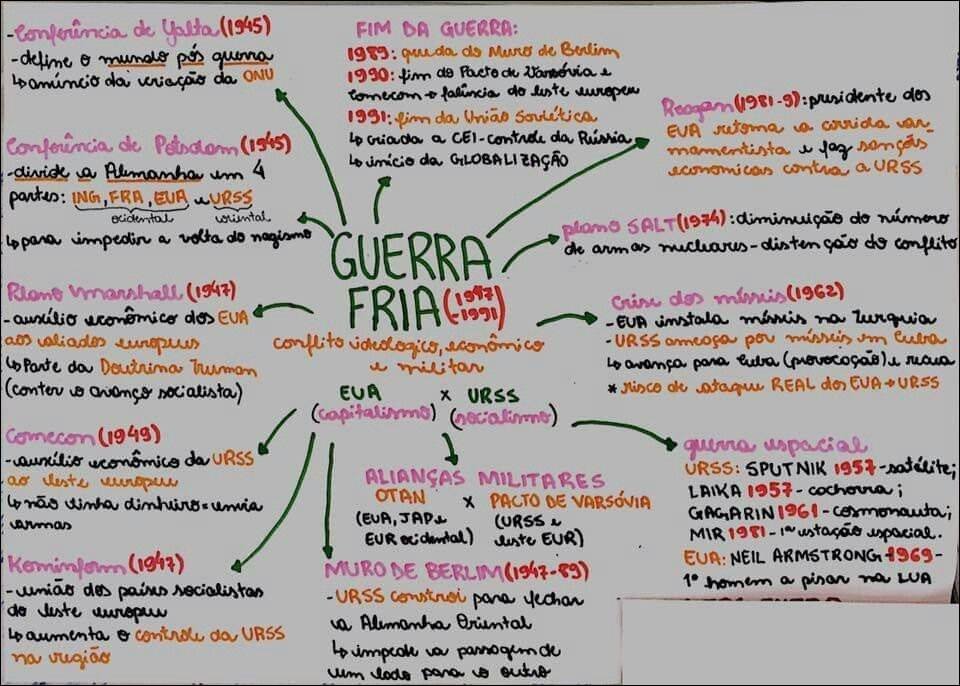 -Conferência de Yalta (1945)
-define o mundo pós guerra
↳anúncio da criação da ONU
Conferência de Potsdam (1945)
-divide a Alemanha em 4
partes: ING, FRA, EUA e URSS
ocidental oriental
↳para impedir a volta do nazismo
Plano Marshall (1947)
-auxílio econômico dos EUA
aos aliados europeus
↳Parte da Doutrina Truman
(conter o avanço socialista)
Comecon (1949)
-auxílio econômico da URSS
ao leste europeu
↳não tinha dinheiro=envia
armas
Kominform (1947)
-união dos países socialistas
do leste europeu
↳aumenta o controle da URSS
na região
FIM DA GUERRA:
1989: queda do Muro de Berlim
1990: fim do Pacto de Varsóvia e
Comecon→falência do leste europeu
1991: fim da União Soviética
↳criada a CEI-controle da Rússia
↳início da GLOBALIZAÇÃO
GUERRA
FRIA (1947
-1991)
conflito ideologico, econômico
e militar
EUA x URSS
(capitalismo) (socialismo)
ALIANÇAS MILITARES
OTAN x PACTO DE VARSÓVIA
(EUA, JAP e (URSS e
EUR ocidental) leste EUR)
MURO DE BERLIM (1947-89)
-URSS constroi para fechar
a Alemanha Oriental
↳impede a passagem de
um lado para o outro
Reagan (1981-9): presidente dos
EUA retoma a corrida ar-
mamentista e faz sanções
economicas contra a URSS
plano SALT (1974): diminuição do número
de armas nucleares-distenção do conflito
Crise dos mísseis (1962)
-EUA instala mísseis na Turquia
-URSS ameaça por mísseis em Cuba
↳avança para Cuba (provocação) e recua
* risco de ataque REAL dos EUA→URSS
guerra espacial
URSS: SPUTNIK 1957-satélite;
LAIKA 1957-cachorra;
GAGARIN 1961-cosmonauta;
MIR 1981-1ª estação espacial.
EUA: NEIL ARMSTRONG-1969-
1º homem a pisar na LUA